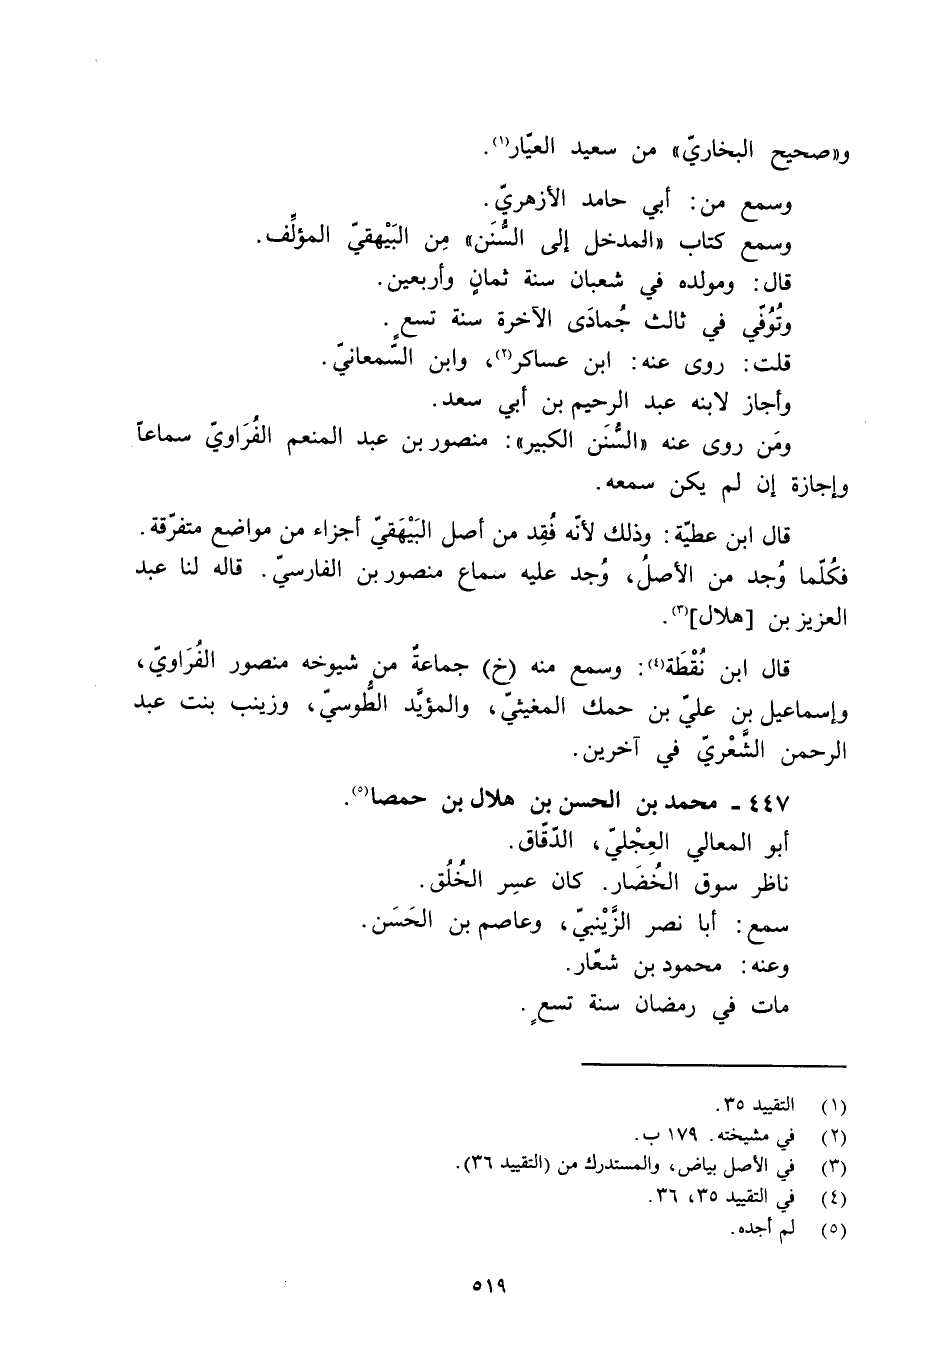 و«صحيح البخاريّ» من سعيد العيّار(١).
وسمع من: أبي حامد الأزهريّ.
وسمع كتاب «المدخل إلى السُّنَن» مِن البَيْهقيّ المؤلِّف.
قال: ومولده في شعبان سنة ثمانٍ وأربعين.
وتُوُفّي في ثالث جُمادَى الآخرة سنة تسعٍ.
قلت: روى عنه: ابن عساكر(٢)، وابن السّمعانيّ.
وأجاز لابنه عبد الرحيم بن أبي سعد.
ومَن روى عنه «السُّنَن الكبير»: منصور بن عبد المنعم الفُرَاويّ سماعاً
وإجازة إن لم يكن سمعه.
قال ابن عطيّة: وذلك لأنّه فُقِد من أصل البَيْهَقيّ أجزاء من مواضع متفرّقة.
فكُلّما وُجد من الأصلُ، وُجد عليه سماع منصور بن الفارسيّ. قاله لنا عبد
العزيز بن [هلال](٣).
قال ابن نُقْطَة(٤): وسمع منه (خ) جماعةٌ من شيوخه منصور الفُرَاويّ،
وإسماعيل بن عليّ بن حمك المغيثيّ، والمؤيَّد الطُّوسيّ، وزينب بنت عبد
الرحمن الشَّعْريّ في آخرين.
٤٤٧ ـ محمد بن الحسن بن هلال بن حمصا(٥).
أبو المعالي العِجْليّ، الدّقّاق.
ناظر سوق الخُضَار. كان عسِر الخُلُق.
سمع: أبا نصر الزَّيْنبيّ، وعاصم بن الحَسَن.
وعنه: محمود بن شعّار.
مات في رمضان سنة تسعٍ.
(١) التقييد ٣٥.
(٢) في مشيخته. ١٧٩ ب.
(٣) في الأصل بياض، والمستدرك من (التقييد ٣٦).
(٤) في التقييد ٣٥، ٣٦.
(٥) لم أجده.
٥١٩